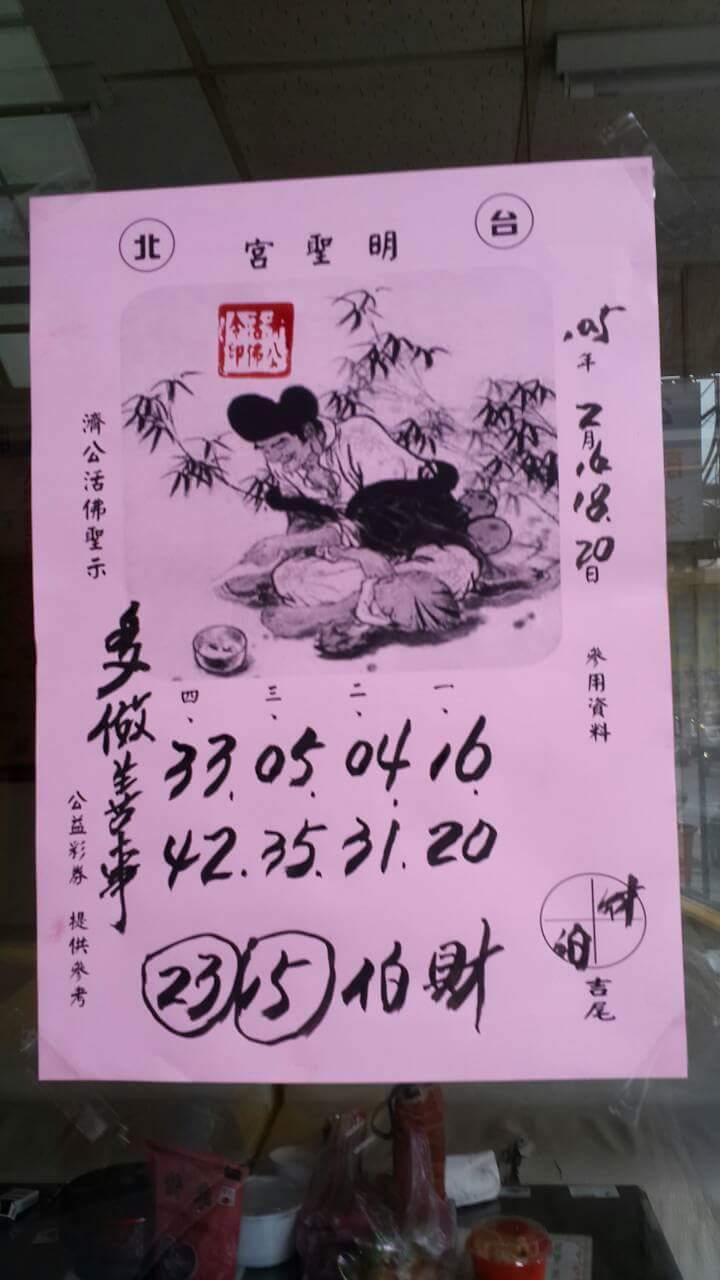 台北
明聖宮
濟公活佛令印
105年2月16.18.20日
參用資料
濟公活佛聖示
一、二、三、四、
16.04.05.33.
20.31.35.42.
財伯 15 23
多做善事
公益彩券 提供參考
財伯
吉尾